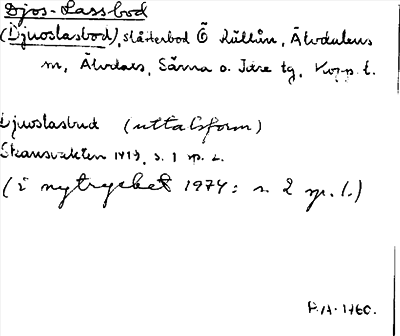 Djos-Lassbod
(Djuoslasbod), slåtterbod Ö Kullån, Älvdalens
m, Älvdals, Särna o. Idre tg, Kopp. l.
Djuoslasbud (uttalsform)
Skansvakten 1919, s. 1 sp. 2.
(i nytrycket 1974: s. 2 sp. 1.)
P.A. 1960.